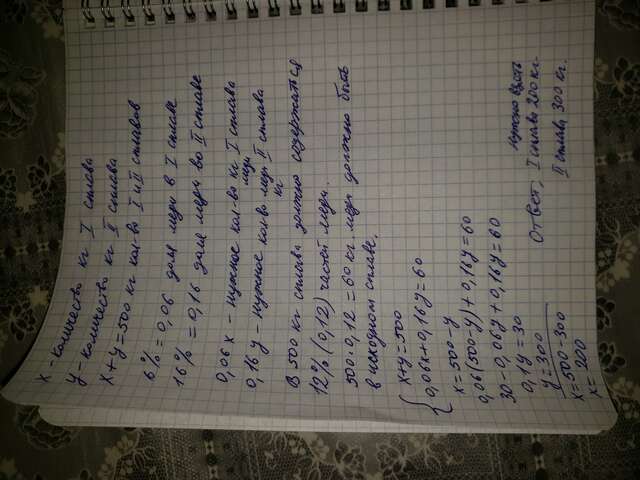 x - количество кг I сплава
y - количество кг II сплава
x+y=500 кг кол-во I и II сплавов
6%=0,06 доля меди в I сплаве
16%=0,16 доля меди во II сплаве
0,06x - нужное кол-во кг меди I сплава
0,16y - нужное кол-во кг меди II сплава
В 500 кг сплава должно содержаться
12% (0,12) частей меди.
500·0,12=60 кг меди должно быть
в исходном сплаве.
{ x+y=500
0,06x+0,16y=60
x=500-y
0,06(500-y)+0,16y=60
30-0,06y+0,16y=60
0,1y=30
y=300
x=500-300
x=200
Ответ, нужно взять
I сплава 200 кг.
II сплава 300 кг.